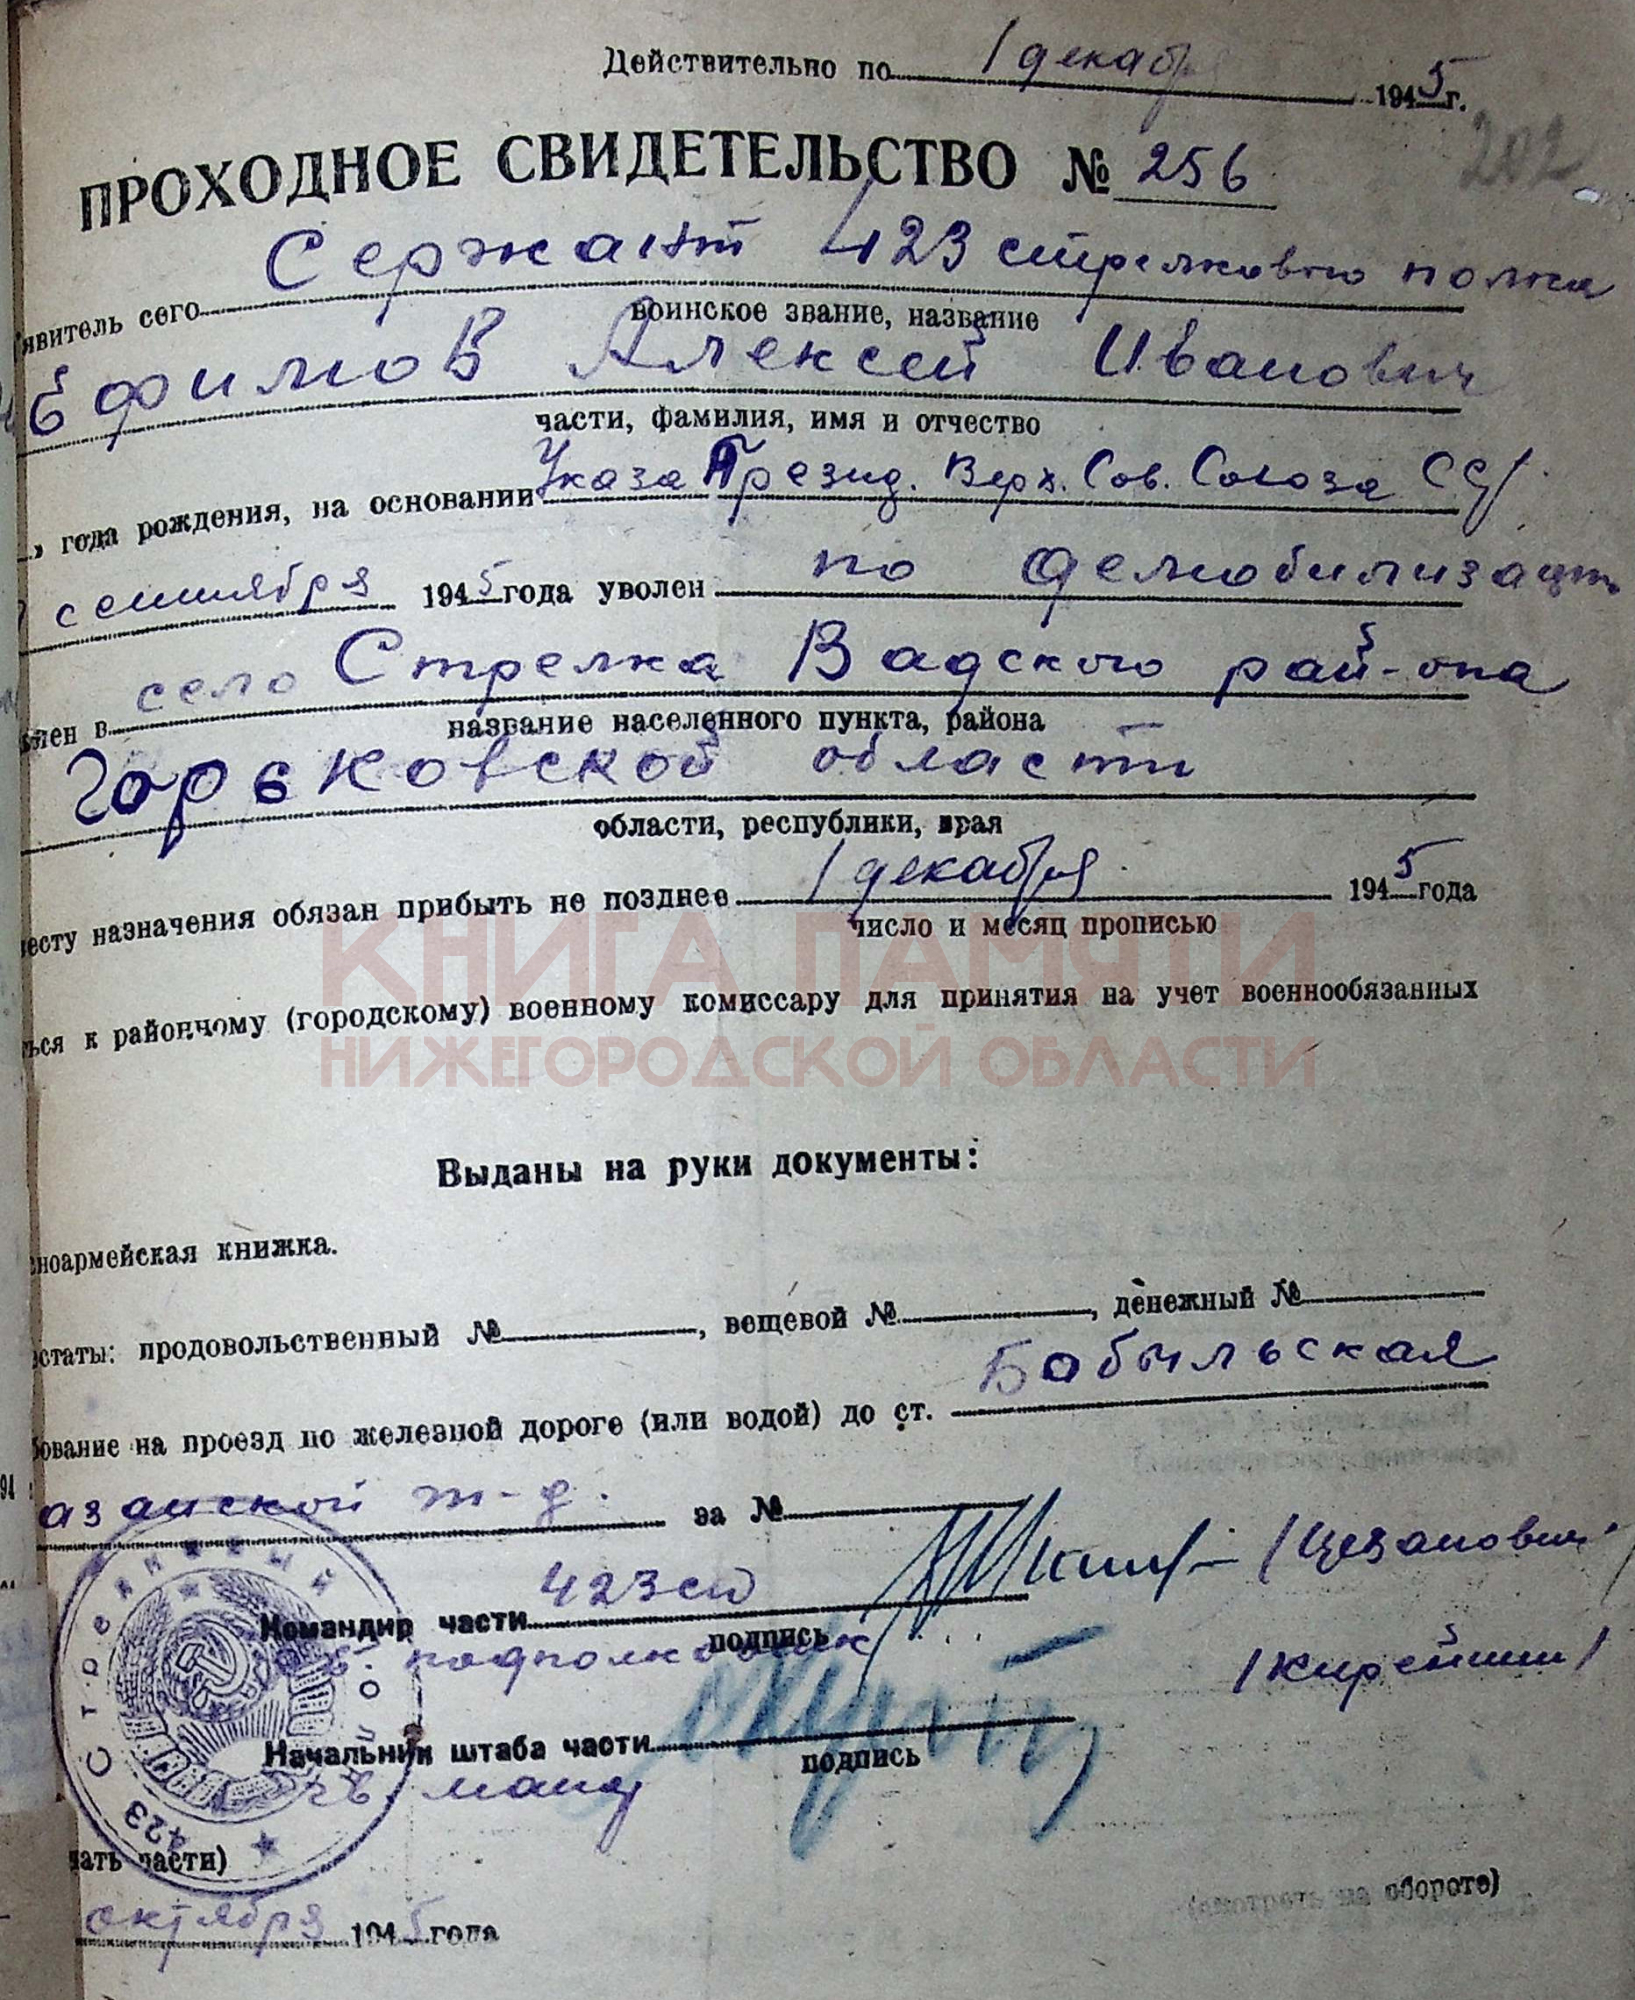 Действительно по 1 декабря 1945 г.
202
ПРОХОДНОЕ СВИДЕТЕЛЬСТВО № 256
явитель сего Сержант 423 стрелкового полка
воинское звание, название
Ефимов Алексей Иванович
части, фамилия, имя и отчество
, года рождения, на основании Указа Презид. Верх. Сов. Союза ССР
сентября 1945 года уволен по демобилизации
лен в село Стрелка Вадского рай-она
название населенного пункта, района
Горьковской области
области, республики, края
есту назначения обязан прибыть не позднее 1 декабря 1945 года
число и месяц прописью
КНИГА ПАМЯТИ
ься к районному (городскому) военному комиссару для принятия на учет военнообязанных
НИЖЕГОРОДСКОЙ ОБЛАСТИ
Выданы на руки документы:
ноармейская книжка.
статы: продовольственный №, вещевой №, денежный №
бование на проезд по железной дороге (или водой) до ст. Бобыльская
азанской ж-д. за №
Командир части 423 сп /Цезанович/
подпись
подполковник
/Кирейшин/
Начальник штаба части
подпись
гв. майор
423
чать части)
(смотреть на обороте)
октября 1945 года